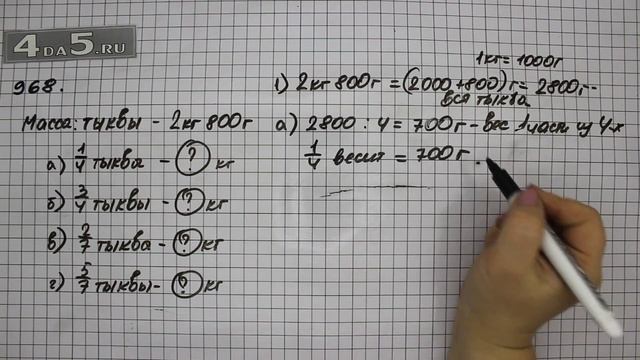 4DA5.RU
968.
Масса: тыквы - 2кг 800г
а) 1/4 тыква - ? кг
б) 3/4 тыквы - ? кг
в) 2/7 тыква - ? кг
г) 5/7 тыквы - ? кг
1кг = 1000г
1) 2кг 800г = (2000 + 800)г = 2800г -
вся тыква
а) 2800 : 4 = 700г - вес 1 част из 4-х
1/4 весит = 700г.